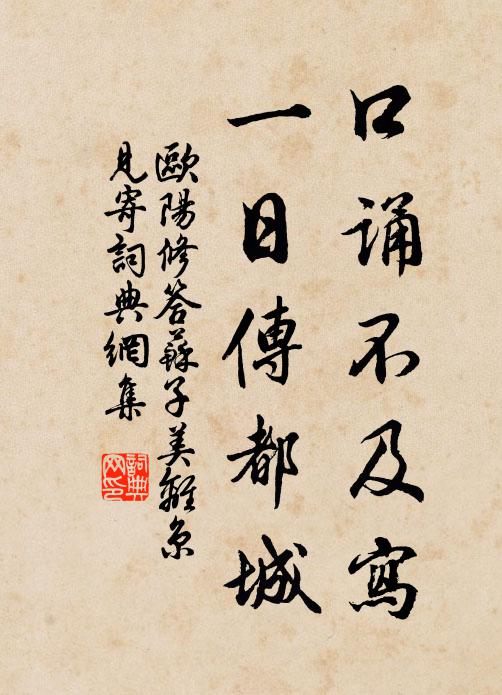 口誦不及寫
一日傳都城
歐陽修答蘇子美離京
見寄詞典網集
詞典
网印